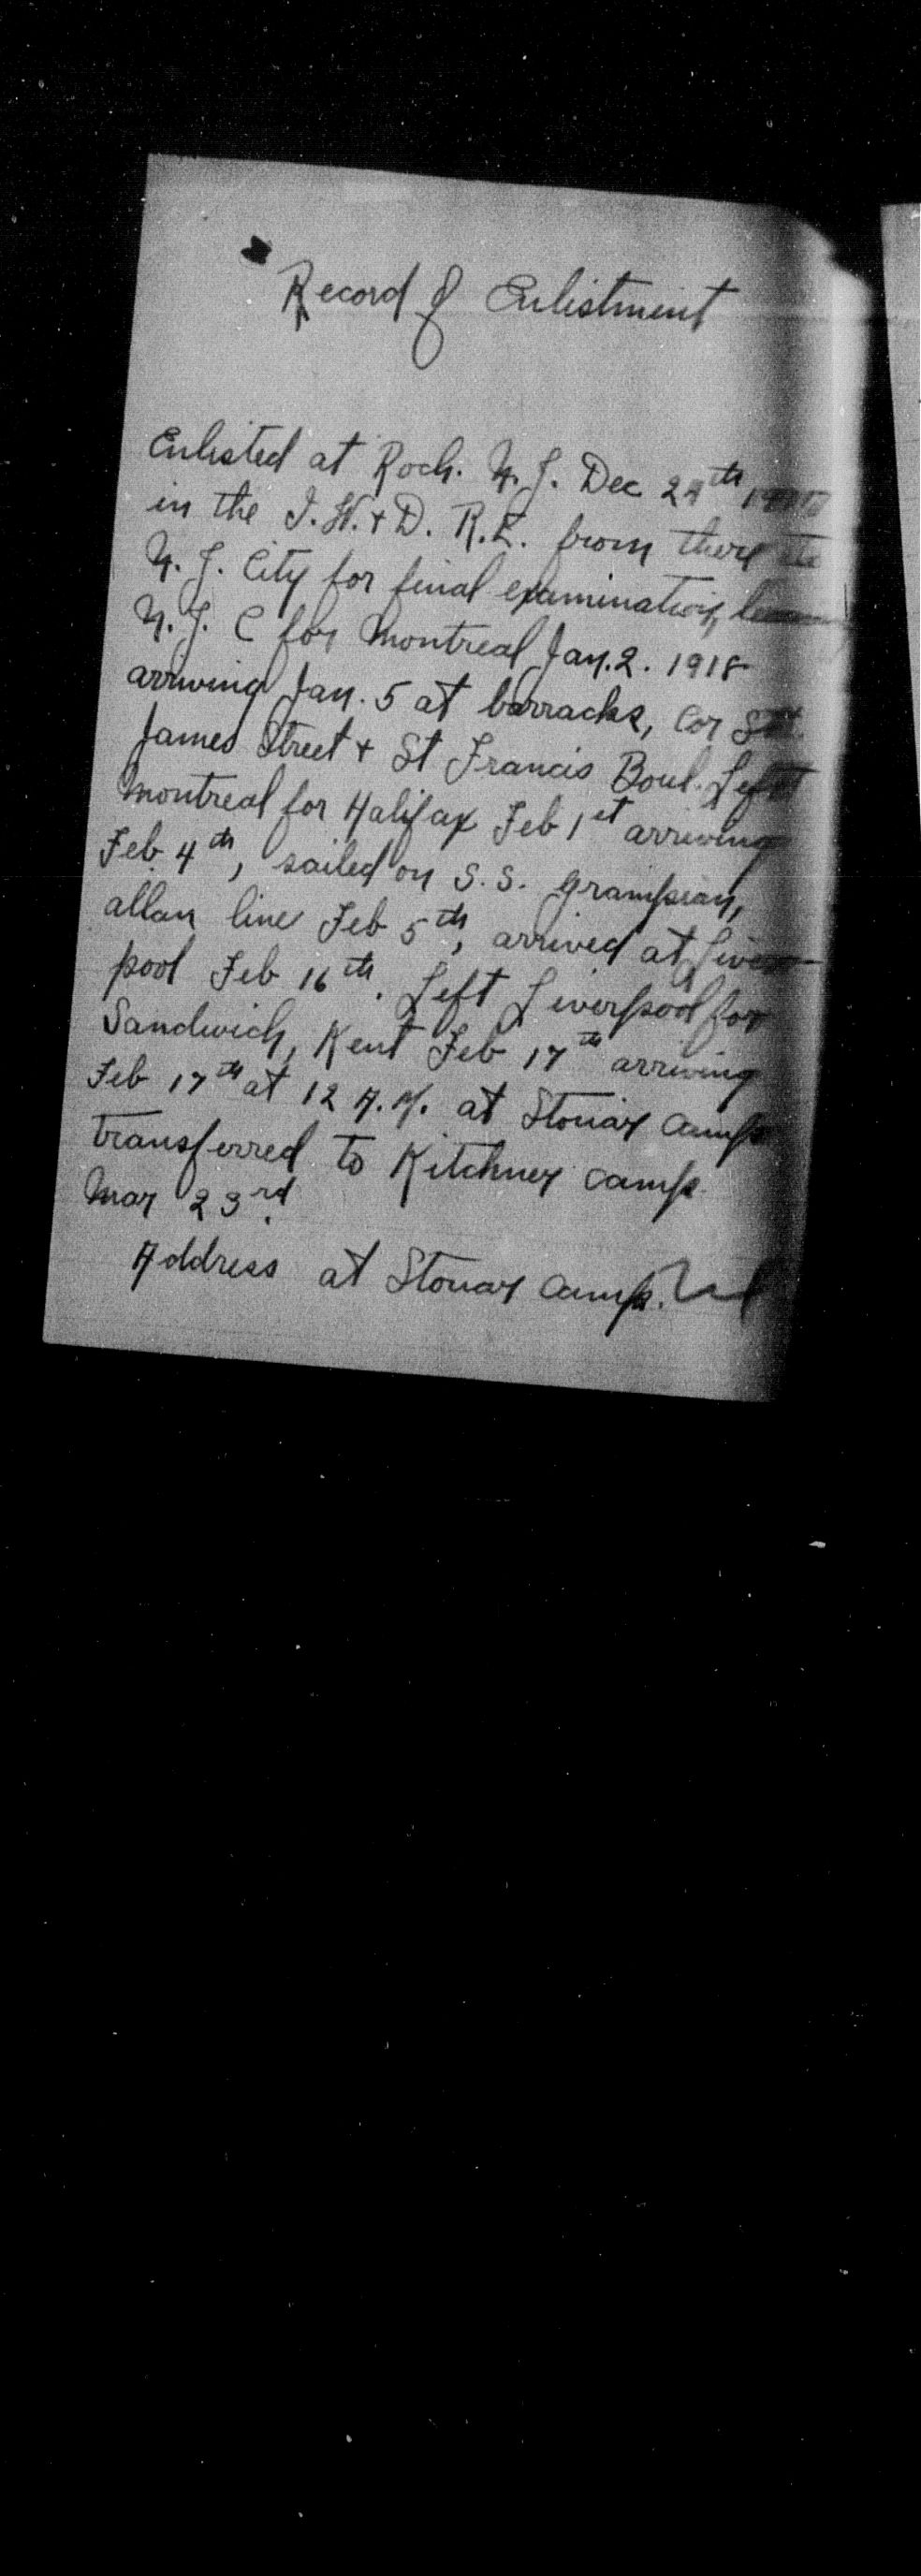 Record of Enlistment
Enlisted at Roch. N.Y. Dec 29th
in the I.W. + D. R.E. from there to
N.Y. City for final examination,
N.Y. C for Montreal Jan. 2. 1918
arriving Jan. 5 at barracks, Cor St.
James Street + St Francis Boul. Left
Montreal for Halifax Feb 1st arriving
Feb. 4th, sailed on S.S. Grampian,
allan line Feb 5th, arrived at Liver-
pool Feb 16th. Left Liverpool for
Sandwich, Kent Feb 17th arriving
Feb 17th at 12 A.M. at Stonar Camp
transferred to Kitchner Camp.
Mar 23rd.
Address at Stonar Camp.